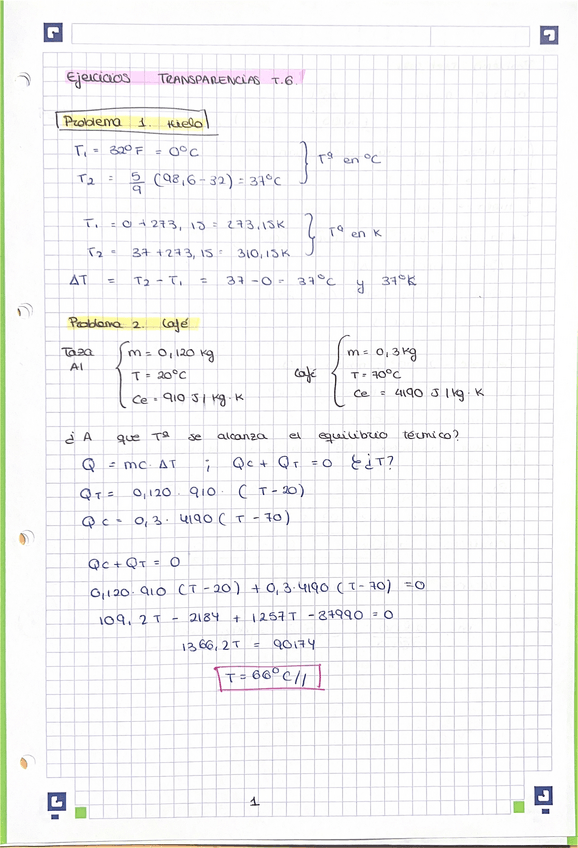 Ejercicios TRANSPARENCIAS T.6.
Problema 1. Hielo
T₁ = 32ºF = 0ºC
T₂ = 5/9 (98,6-32) = 37ºC
Tª en ºC
T₁ = 0 + 273,15 = 273,15K
T₂ = 37 + 273,15 = 310,15K
Tª en K
ΔT = T₂ - T₁ = 37 - 0 = 37ºC y 37ºK
Problema 2. Café
Taza Al
m = 0,120 kg
T = 20ºC
Ce = 910 J/kg·K
Café
m = 0,3 kg
T = 70ºC
Ce = 4190 J/kg·K
¿A que Tª se alcanza el equilibrio térmico?
Q = mc·ΔT ; Qc + QT = 0 ¿T?
QT = 0,120 · 910 · (T-20)
Qc = 0,3 · 4190 (T-70)
Qc + QT = 0
0,120·910 (T-20) + 0,3·4190 (T-70) = 0
109,2T - 2184 + 1257T - 87990 = 0
1366,2T = 90174
T = 66ºC//
1